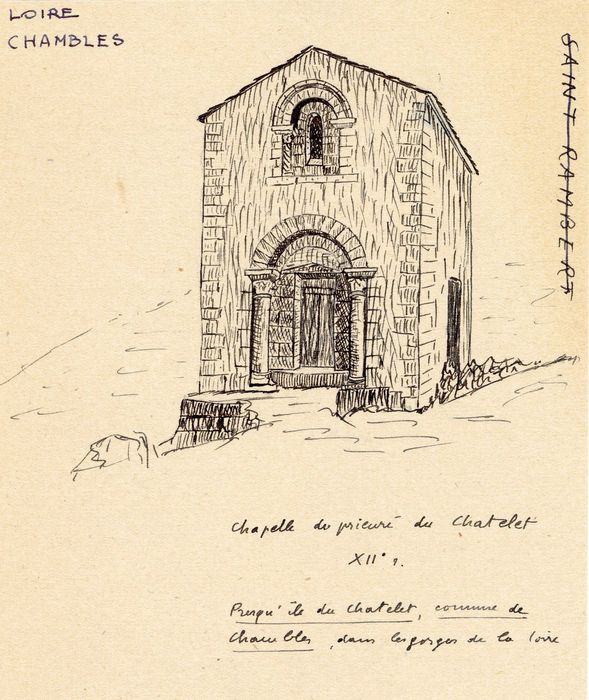 LOIRE
CHAMBLES
SAINT RAMBERT
Chapelle du prieuré du Chatelet
XII° s.
Presqu'île du Chatelet, commune de
Chambles, dans les gorges de la Loire